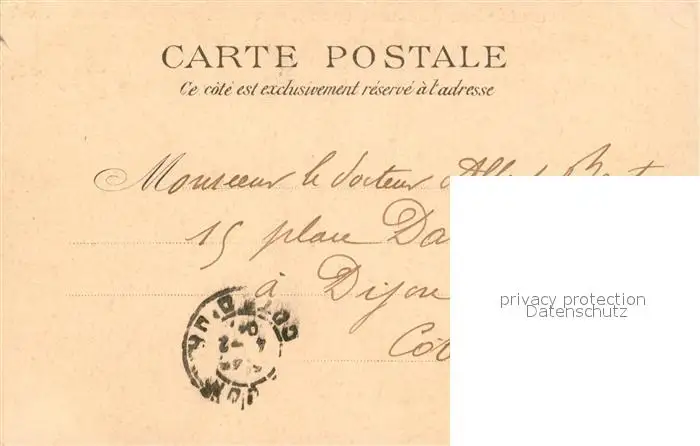 CARTE POSTALE
Ce côté est exclusivement réservé à l'adresse
Monsieur le docteur
15 place Da
à Dijon
Côt
privacy protection
Datenschutz